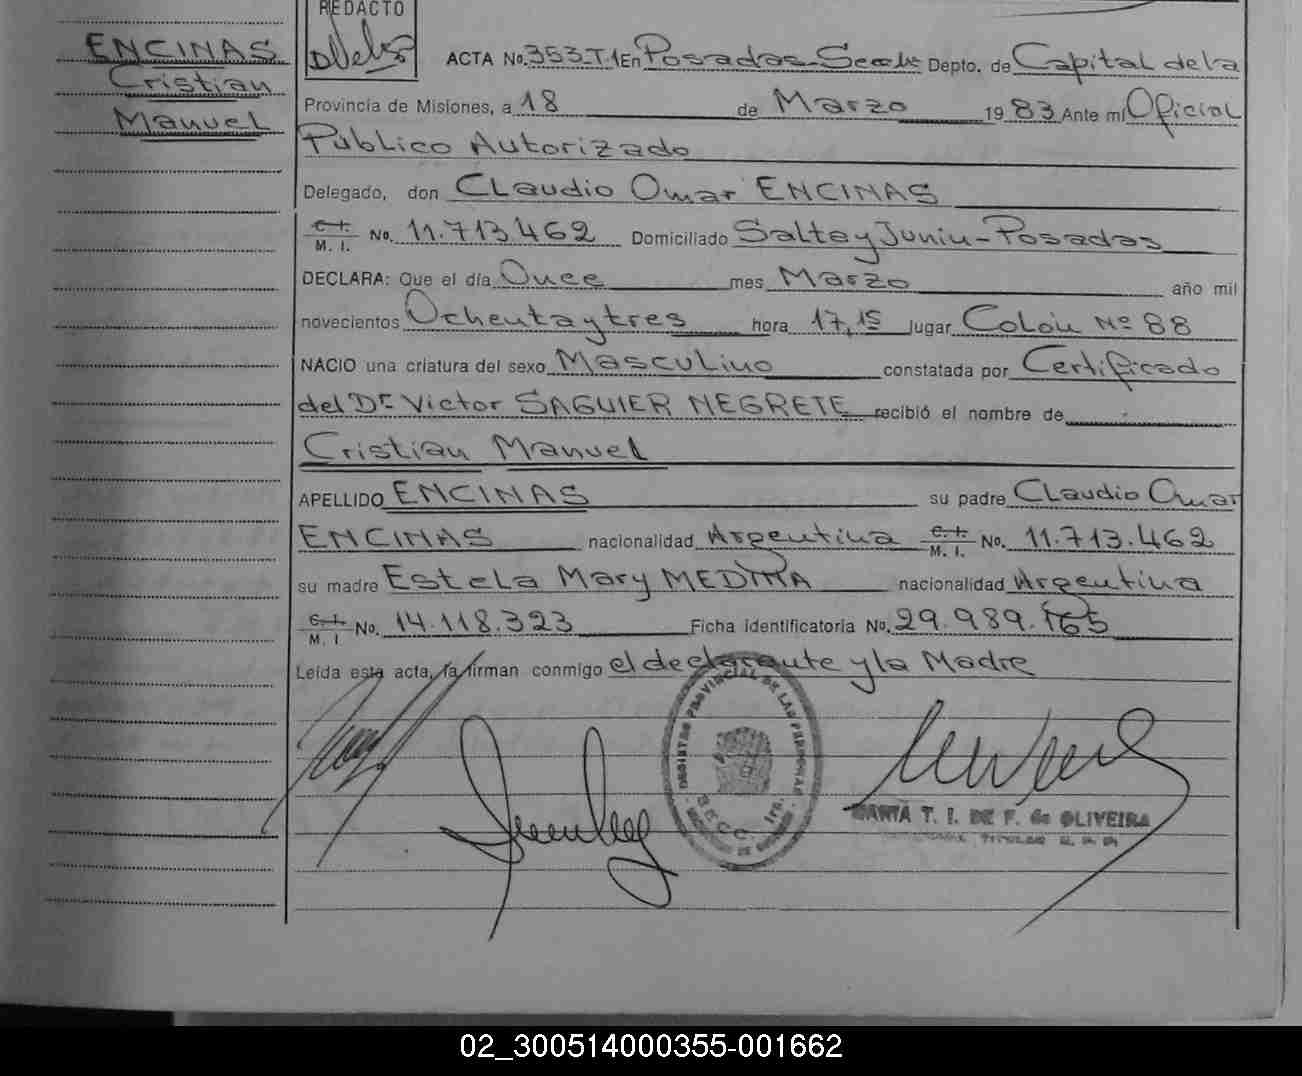 ENCINAS
Cristian
Manuel
REDACTO
ACTA No. 353.T1 En Posadas Secc. 1ra Depto. de Capital de la
Provincia de Misiones, a 18 de Marzo 1983 Ante mí Oficial
Público Autorizado
Delegado, don Claudio Omar ENCINAS
C. I. M. I. No. 11.713.462 Domiciliado Salta y Junin - Posadas
DECLARA: Que el día Once mes Marzo año mil
novecientos Ochenta y tres hora 17,15 lugar Colón Nº 88
NACIO una criatura del sexo Masculino constatada por Certificado
del Dr. Victor SAGUIER NEGRETE recibió el nombre de
Cristian Manuel
APELLIDO ENCINAS su padre Claudio Omar
ENCINAS nacionalidad Argentina C. I. M. I. No. 11.713.462
su madre Estela Mary MEDINA nacionalidad Argentina
C. I. M. I. No. 14.118.323 Ficha identificatoria No. 29.989.165
Leída esta acta, la firman conmigo el declarante y la Madre
REGISTRO PROVINCIAL DE LAS PERSONAS
SECC. 1ra.
MARTA T. I. DE F. de OLIVEIRA
02_300514000355-001662